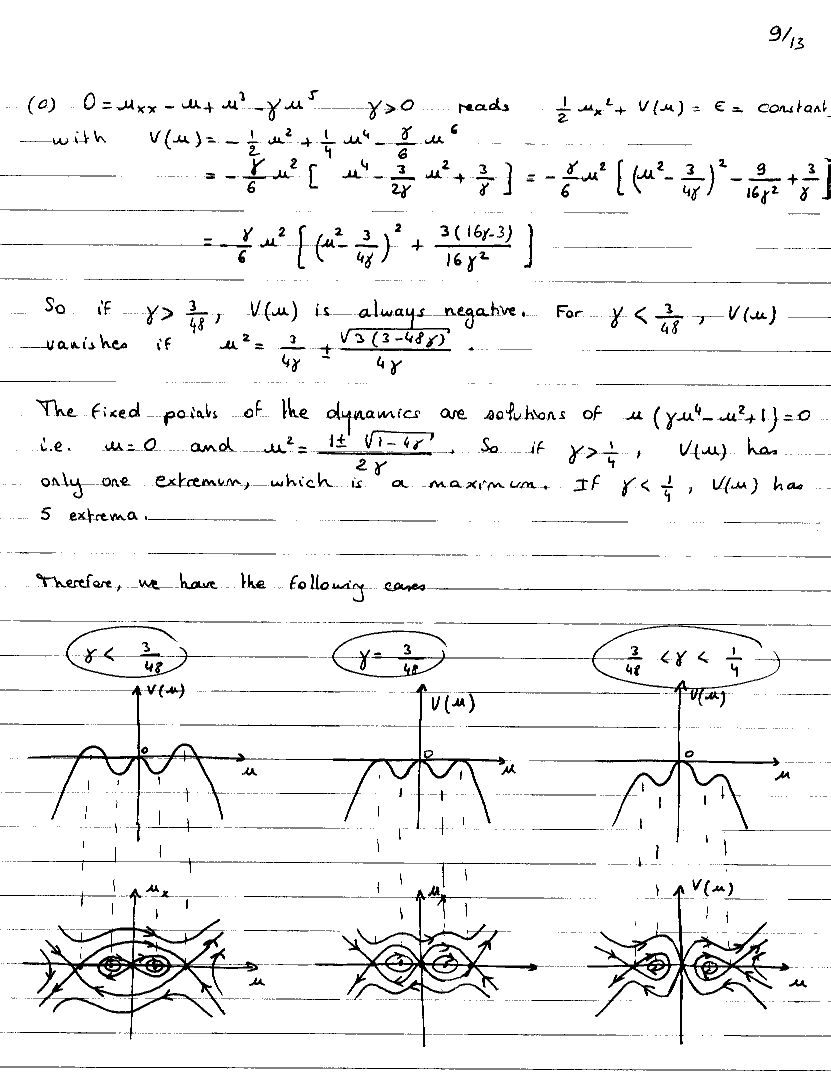 9/13
(o) 0 = μxx - μ + μ³ - γμ⁵ γ>0 reads 1/2 μx² + V(μ) = ε = constant
with V(μ) = - 1/2 μ² + 1/4 μ⁴ - γ/6 μ⁶
= - γ/6 μ² [ μ⁴ - 3/2γ μ² + 3/γ ] = - γ/6 μ² [ (μ² - 3/4γ)² - 9/16γ² + 3/γ ]
= - γ/6 μ² [ (μ² - 3/4γ)² + 3(16γ-3)/16γ² ]
So if γ > 3/48, V(μ) is always negative. For γ < 3/48, V(μ)
vanishes if μ² = 3/4γ ± √3(3-48γ)/4γ.
The fixed points of the dynamics are solutions of μ(γμ⁴-μ²+1)=0
i.e. μ=0 and μ² = 1±√1-4γ/2γ. So if γ > 1/4, V(μ) has
only one extremum, which is a maximum. If γ < 1/4, V(μ) has
5 extrema.
Therefore, we have the following cases
γ < 3/48 γ = 3/48 3/48 < γ < 1/4
V(μ) V(μ) V(μ)
0 0 0
μ μ μ
μx μx V(μ)
μ μ μ